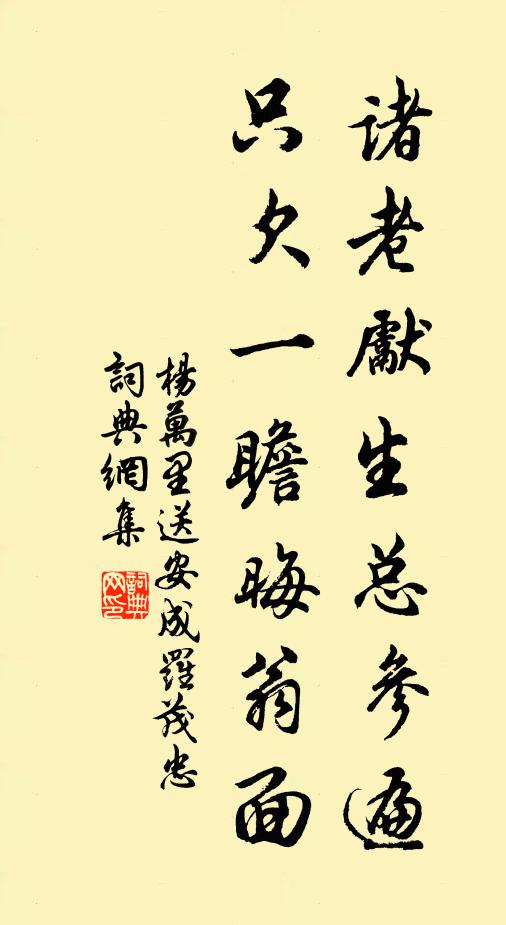 诸老獻生总參遍
只欠一瞻晦翁面
楊萬里送安成羅茂忠
詞典網集
詞典网印